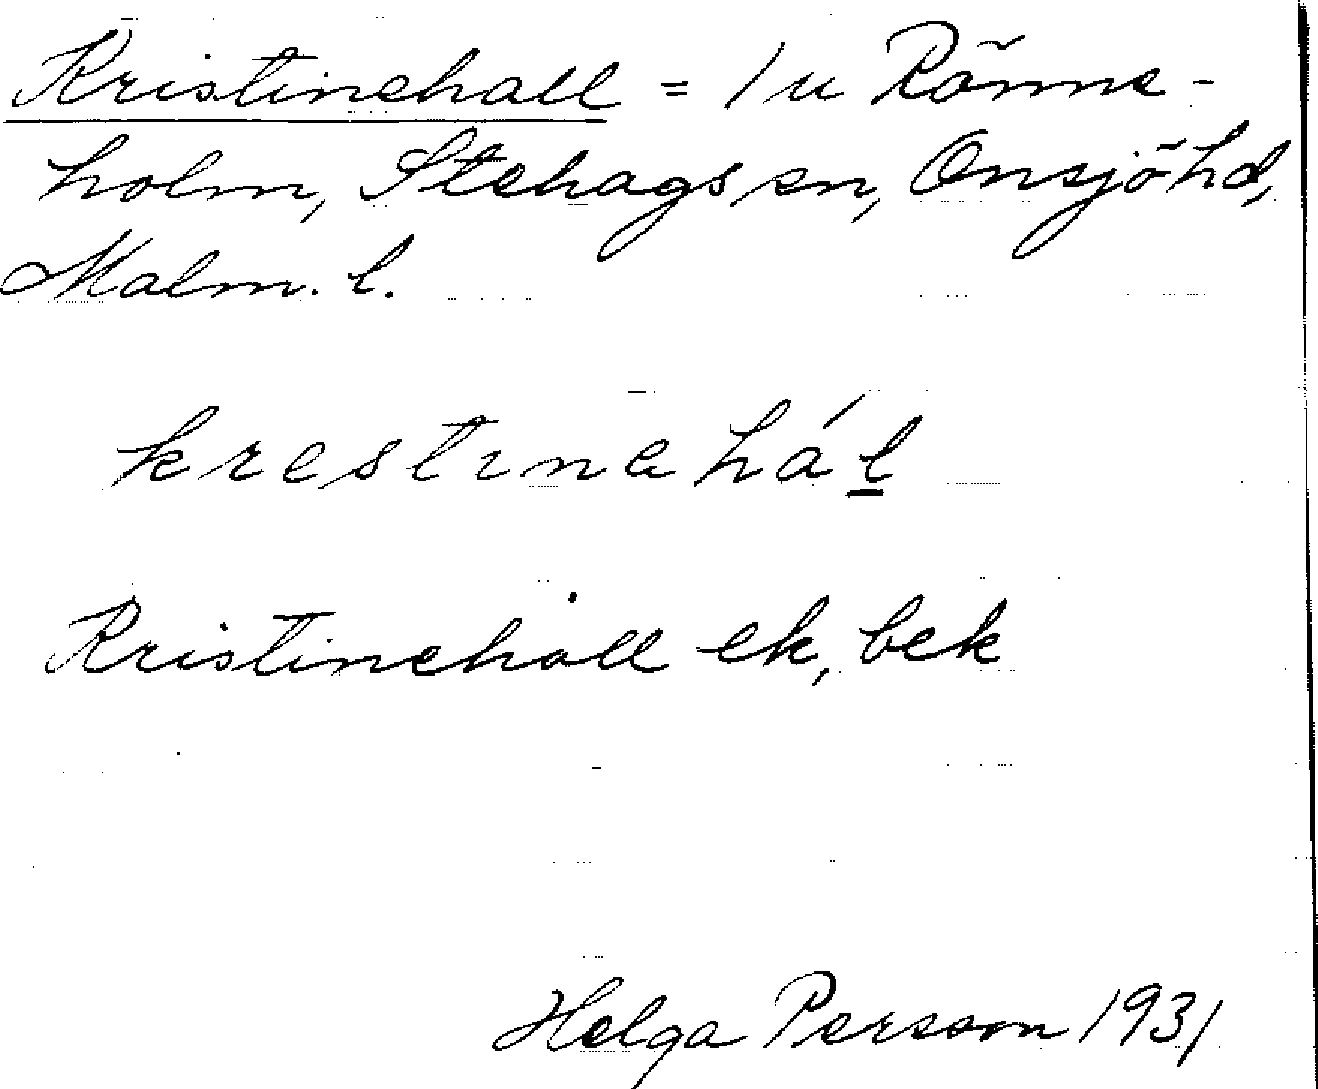 Kristinehall = 1 u Rönne-
holm, Stehags sn, Onsjö hd,
Malm. l.
krestinəhál
Kristinehall ek, bek
Helga Person 1931